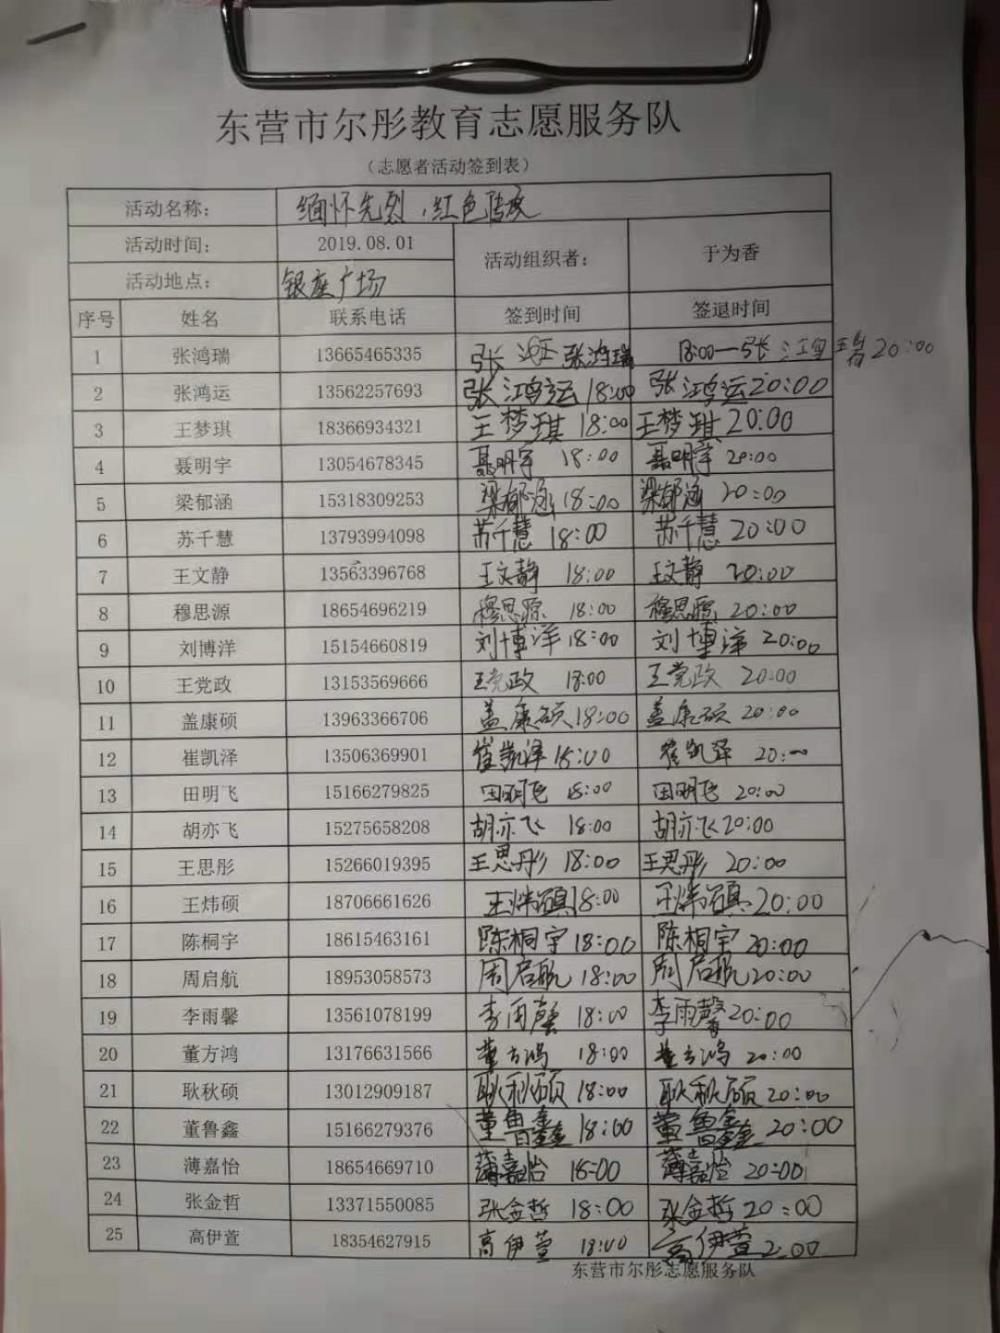 东营市尔彤教育志愿服务队
（志愿者活动签到表）
活动名称： 缅怀先烈，红色传承
活动时间： 2019.08.01 活动组织者： 于为香
活动地点： 银座广场
序号 姓名 联系电话 签到时间 签退时间
1 张鸿瑞 13665465335 张 张鸿瑞 18:00—张 20:00
2 张鸿运 13562257693 张鸿运 18:00 张鸿运 20:00
3 王梦琪 18366934321 王梦琪 18:00 王梦琪 20:00
4 聂明宇 13054678345 聂明宇 18:00 聂明宇 20:00
5 梁郁涵 15318309253 梁郁涵 18:00 梁郁涵 20:00
6 苏千慧 13793994098 苏千慧 18:00 苏千慧 20:00
7 王文静 13563396768 王文静 18:00 王文静 20:00
8 穆思源 18654696219 穆思源 18:00 穆思源 20:00
9 刘博洋 15154660819 刘博洋 18:00 刘博洋 20:00
10 王党政 13153569666 王党政 18:00 王党政 20:00
11 盖康硕 13963366706 盖康硕 18:00 盖康硕 20:00
12 崔凯泽 13506369901 崔凯泽 18:00 崔凯泽 20:00
13 田明飞 15166279825 田明飞 18:00 田明飞 20:00
14 胡亦飞 15275658208 胡亦飞 18:00 胡亦飞 20:00
15 王思彤 15266019395 王思彤 18:00 王思彤 20:00
16 王炜硕 18706661626 王炜硕 18:00 王炜硕 20:00
17 陈桐宇 18615463161 陈桐宇 18:00 陈桐宇 20:00
18 周启航 18953058573 周启航 18:00 周启航 20:00
19 李雨馨 13561078199 李雨馨 18:00 李雨馨 20:00
20 董方鸿 13176631566 董方鸿 18:00 董方鸿 20:00
21 耿秋硕 13012909187 耿秋硕 18:00 耿秋硕 20:00
22 董鲁鑫 15166279376 董鲁鑫 18:00 董鲁鑫 20:00
23 薄嘉怡 18654669710 薄嘉怡 18:00 薄嘉怡 20:00
24 张金哲 13371550085 张金哲 18:00 张金哲 20:00
25 高伊萱 18354627915 高伊萱 18:00 高伊萱 2:00
东营市尔彤志愿服务队